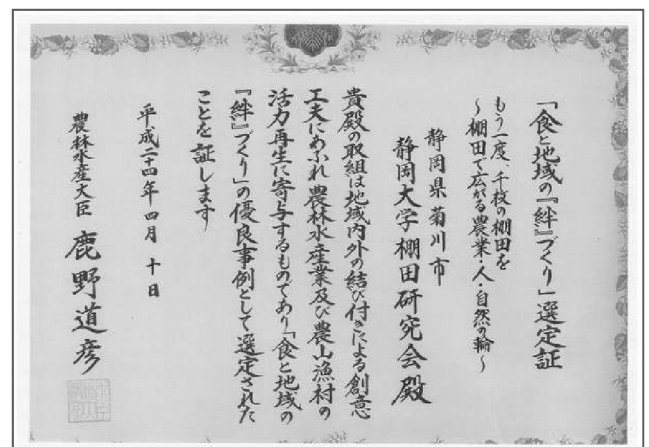 「食と地域の『絆』づくり」選定証
もう一度、千枚の棚田を
～棚田で広がる農業・人・自然の輪～
静岡県菊川市
静岡大学棚田研究会殿
貴殿の取組は地域内外の結び付きによる創意
工夫にあふれ農林水産業及び農山漁村の
活力再生に寄与するものであり「食と地域の
『絆』づくり」の優良事例として選定された
ことを証します
平成二十四年四月十日
農林水産大臣 鹿野道彦